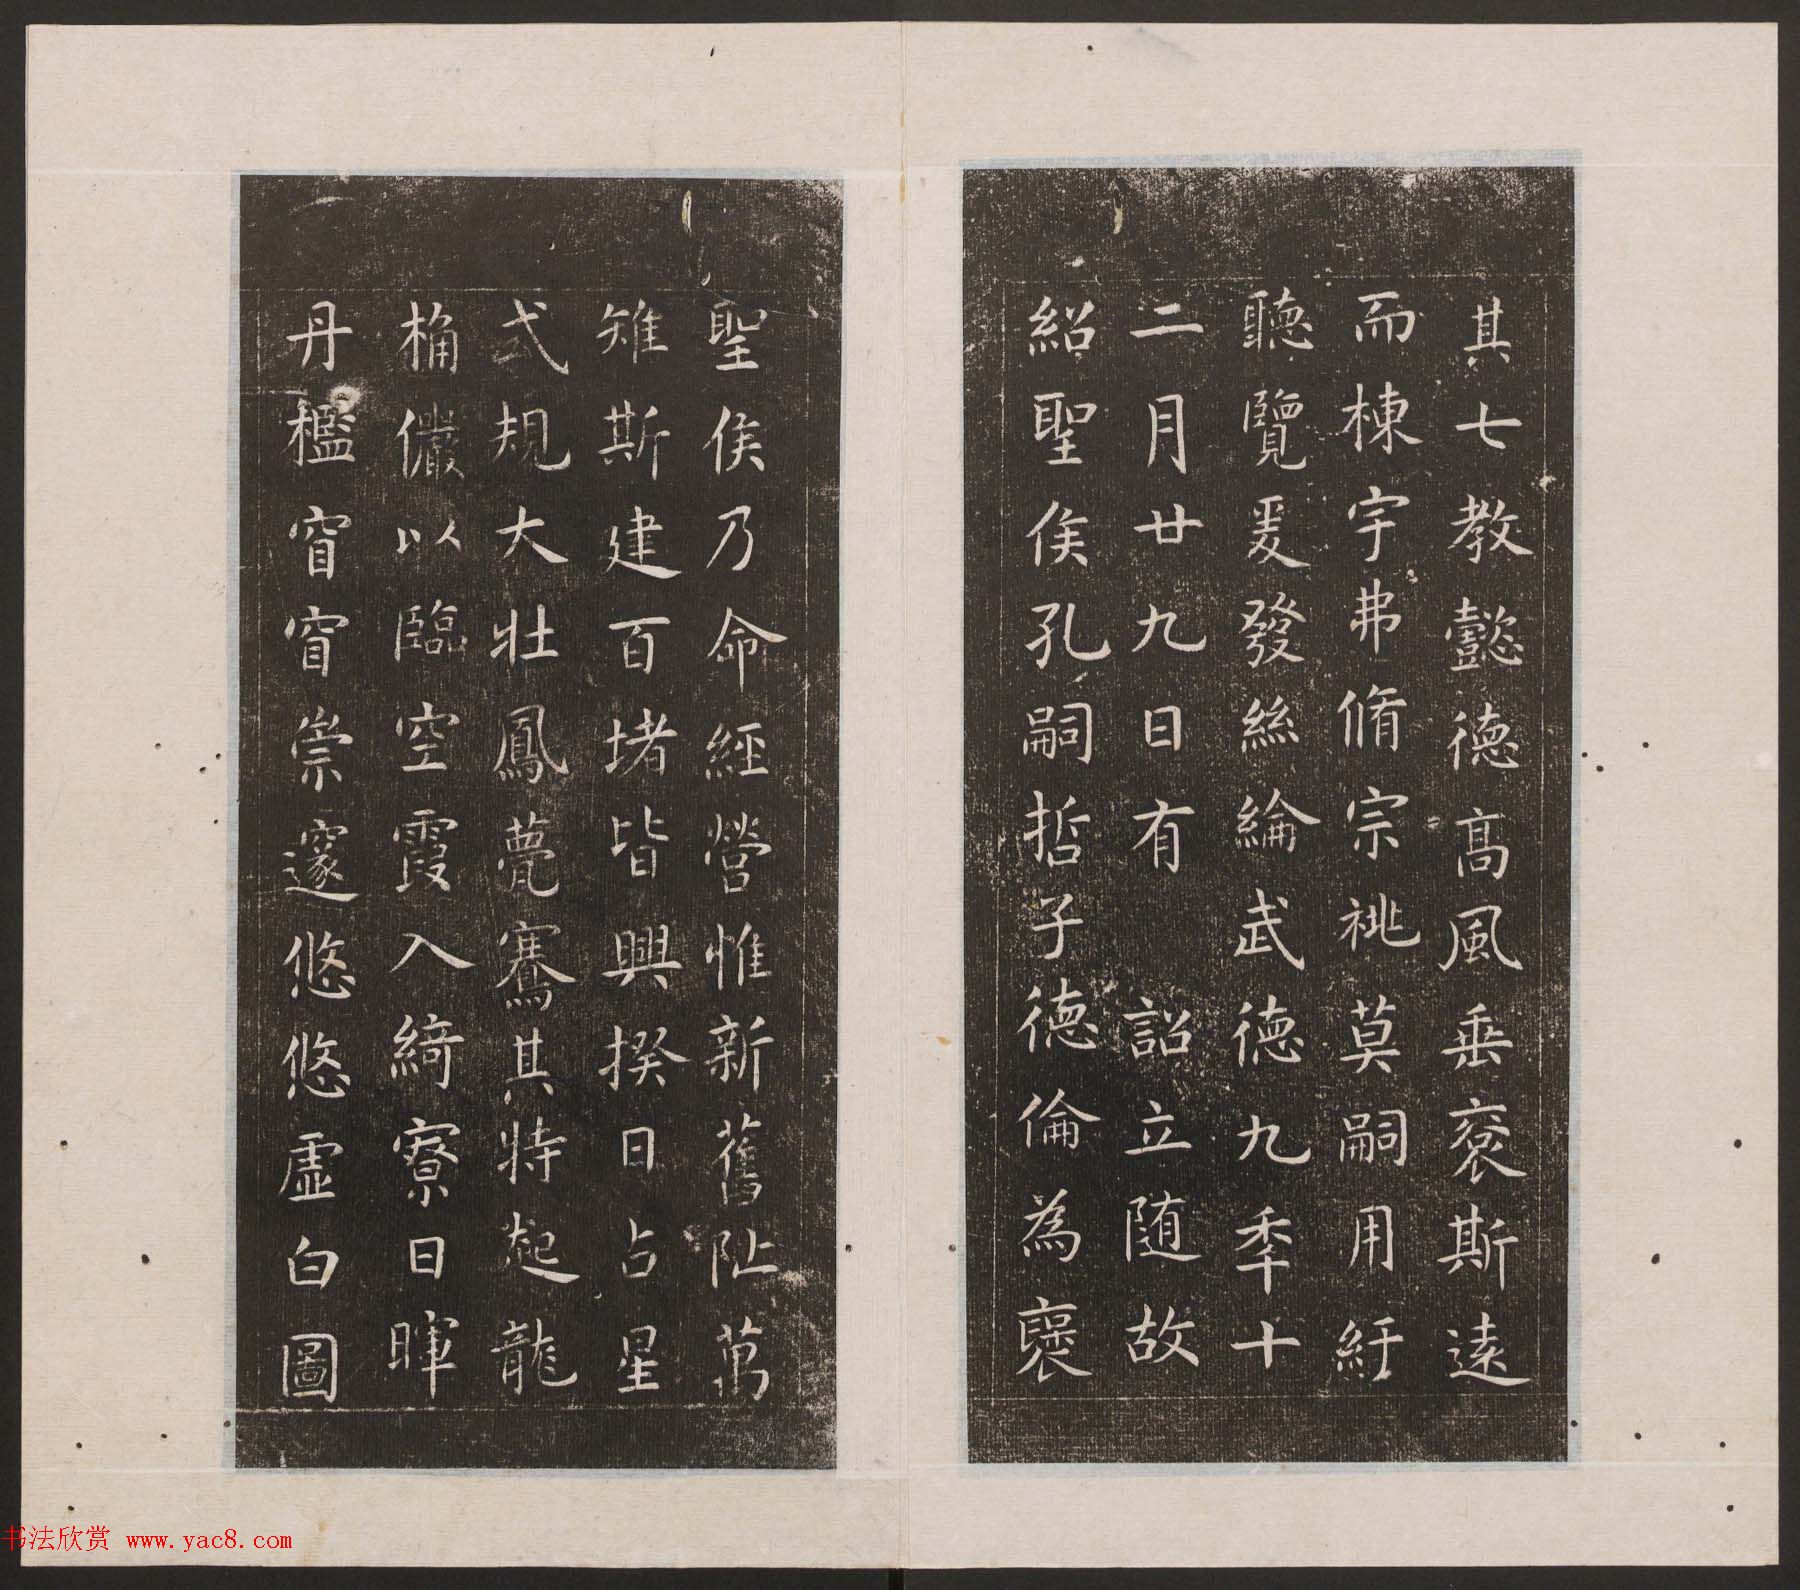 其七教懿德高風垂裦斯遠
而棟宇弗脩宗祧莫嗣用紆
聽覽爰發絲綸武德九秊十
二月廿九日有詔立随故
紹聖侯孔嗣哲子德倫為襃
聖侯乃命經營惟新舊阯萬
雉斯建百堵皆興揆日占星
式規大壯鳳甍騫其特起龍
桷儼以臨空霞入綺寮日暉
丹檻窅窅崇邃悠悠虛白圖
书法欣赏 www.yac8.com